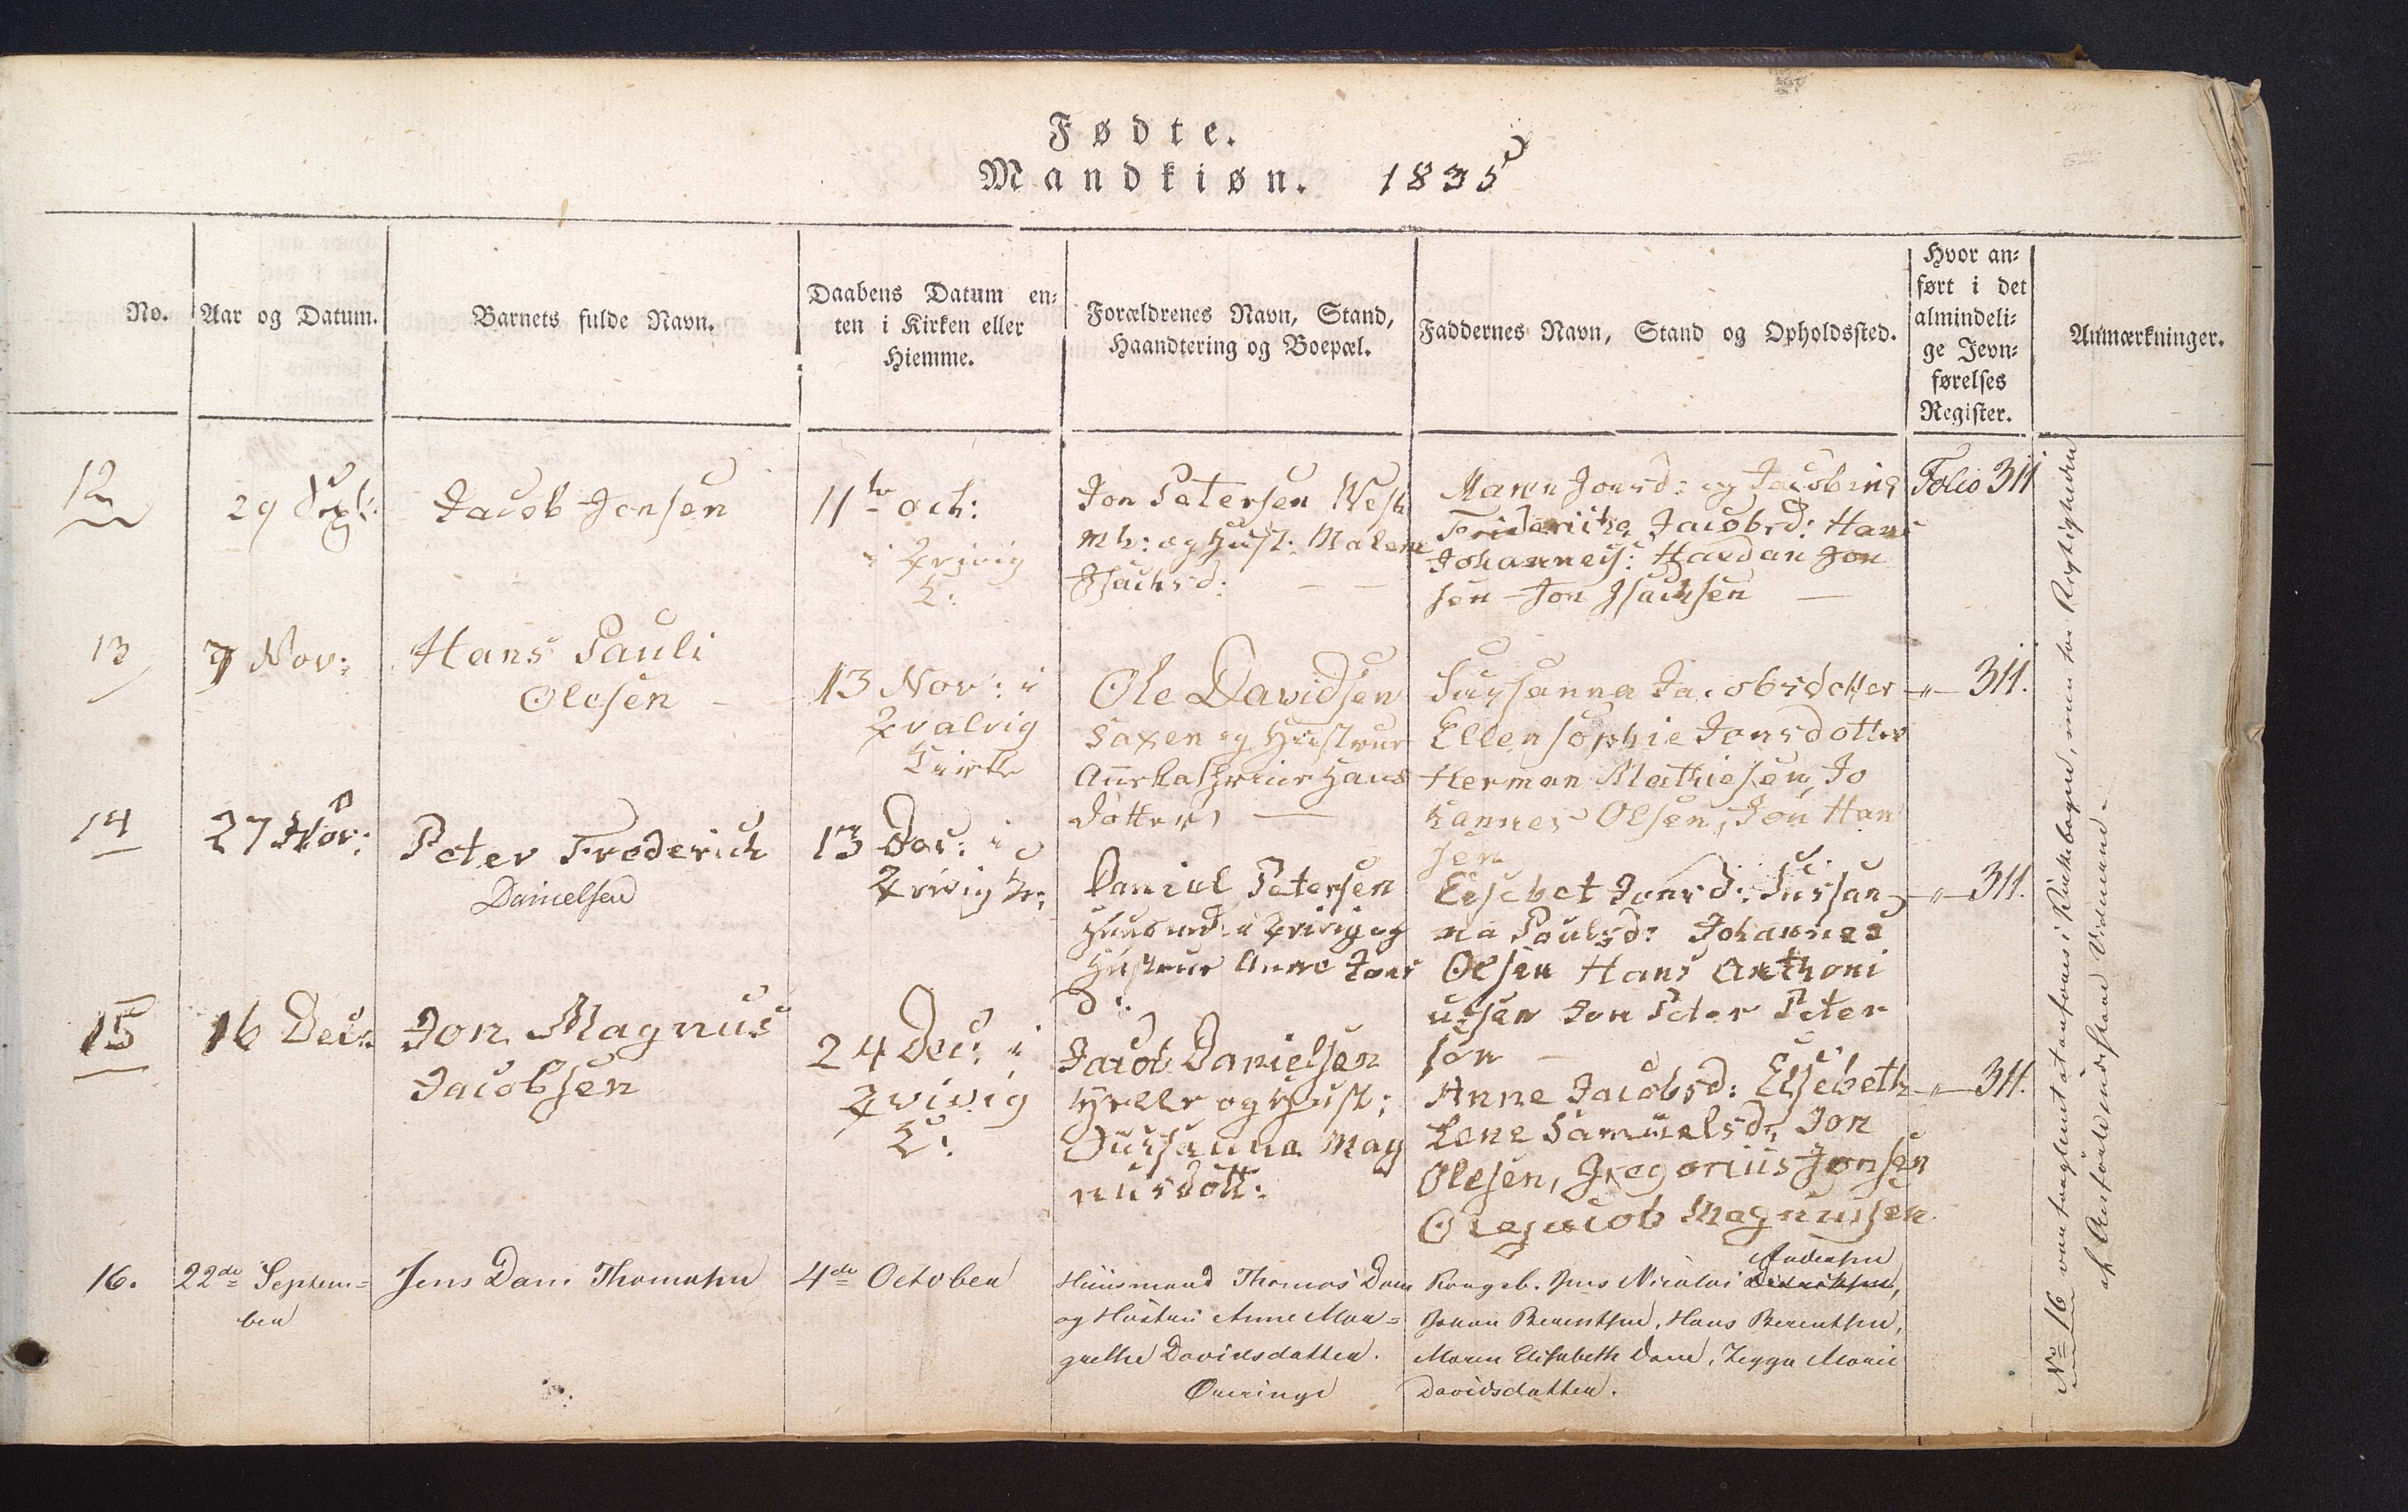 Fødte.
Mandkiøn. 1835
No.
Aar og Datum.
Barnets fulde Navn.
Daabens Datum en-
ten i Kirken eller
Hiemme.
Forældrenes Navn, Stand,
Haandtering og Boepæl.
Faddernes Navn, Stand og Opholdssted.
Hvor an-
ført i det
almindeli-
ge Jevn-
førelses
Register.
Anmærkninger.
12
29 Sept:
Jacob Jonsen
11te Oct:
i
K:
Jon Petersen West
mh: og Hust: Malene
Isachsd:
Maren Jonsd: og Jacobine
Frideriche Jacobsd: Hans
Johannes: Haedan Jon
sen Jon Isachsen
Folio 311
13
9 Nov:
Hans Pauli
Olesen
13 Nov: i
Qvalvig
Kirke
Ole Davidsen
Saxen og Hustrue
Anne Kathrine Hans
dotter
Sussanna Jacobsdotter
Ellen Sophie Jonsdotter
Herman Mathiesen, Jo
hannes Olsen, Jon Han
sen
-"- 311.
14
27 Nov:
Peter Frederich
Danielsen
13 Dec: i
K:
Daniel Petersen
Huusmd: i og
Hustrue Anne Jons
d:
Elsebet Jonsd: Sussan
na Poulsd: Johannes
Olsen Hans Anthoni
ussen Jon Peter Peter
sen
-"- 311.
15
16 Dec:
Jon Magnus
Jacobsen
24 Dec: i
K:
Jacob Danielsen
og Hust:
Sussanna Mag
nusdott:
Anne Jacobsd: Elsebeth
Lene Samuelsd: Jon
Olesen, Gregorius Jonsen
Ole Jacob Magnussen
-"- 311.
16.
22de Septem-
ber
Jens Dam Thomasen
4de October
Huusmand Thomas Dam
og Hustru Anne Mar-
grethe Davidsdatter.
Qveringe
Andersen
Kongsb. Jens Nicolai Didriksen,
Johan Berentsen, Hans Berentsen,
Maren Elisabeth Dam, Zeyga Marie
Davidsdatter.
No 16 var forglemt at anføres i Kirkebogen, men for Rigtigheden
af Anførte indestaaer Vedkommende.